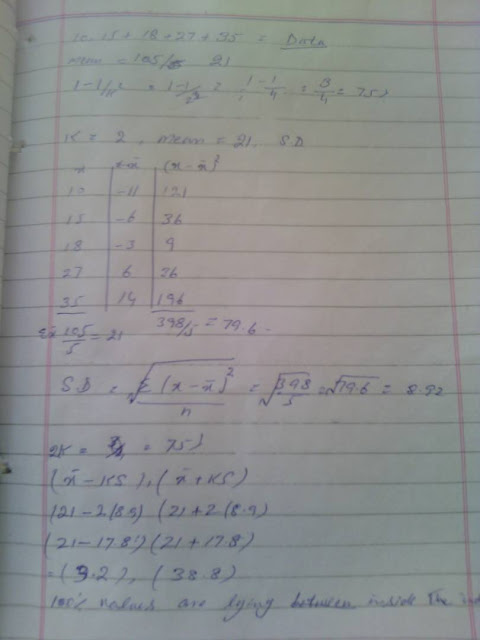 10, 15 + 18 + 27 + 35 = Data
mean = 105/5 21
1 - 1/K² = 1 - 1/2² = 1 - 1/4 = 3/4 = 75%
K = 2, mean = 21, S.D
x | x-x̄ | (x-x̄)²
10 | -11 | 121
15 | -6 | 36
18 | -3 | 9
27 | 6 | 36
35 | 14 | 196
Σx 105/5 = 21 398/5 = 79.6
SD = √Σ(x-x̄)²/n = √398/5 = √79.6 = 8.92
2K = 3/4 = 75%
(x̄ - KS), (x̄ + KS)
(21 - 2(8.9) (21 + 2(8.9)
(21 - 17.8) (21 + 17.8)
= (3.2), (38.8)
100% values are lying between inside the